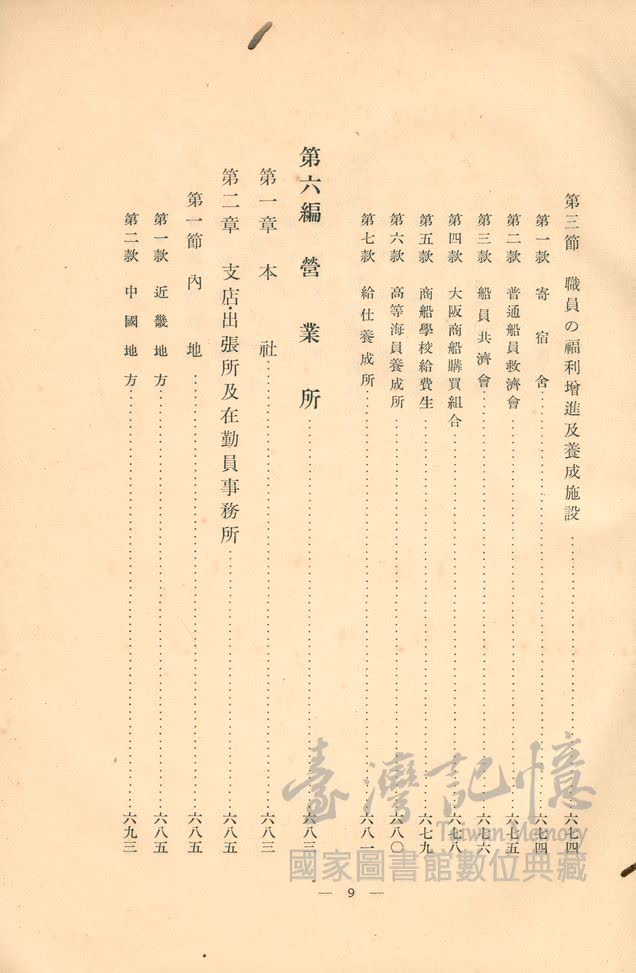 第三節 職員の福利增進及養成施設……六七四
第一款 寄宿舍……六七四
第二款 普通船員救濟會……六七五
第三款 船員共濟會……六七六
第四款 大阪商船購買組合……六七八
第五款 商船學校給費生……六七九
第六款 高等海員養成所……六八〇
第七款 給仕養成所……六八一
第六編 營業所……六八三
第一章 本社……六八三
第二章 支店・出張所及在勤員事務所……六八五
第一節 內地……六八五
第一款 近畿地方……六八五
第二款 中國地方……六九三
— 9 —
臺灣記憶
Taiwan Memory
國家圖書館數位典藏